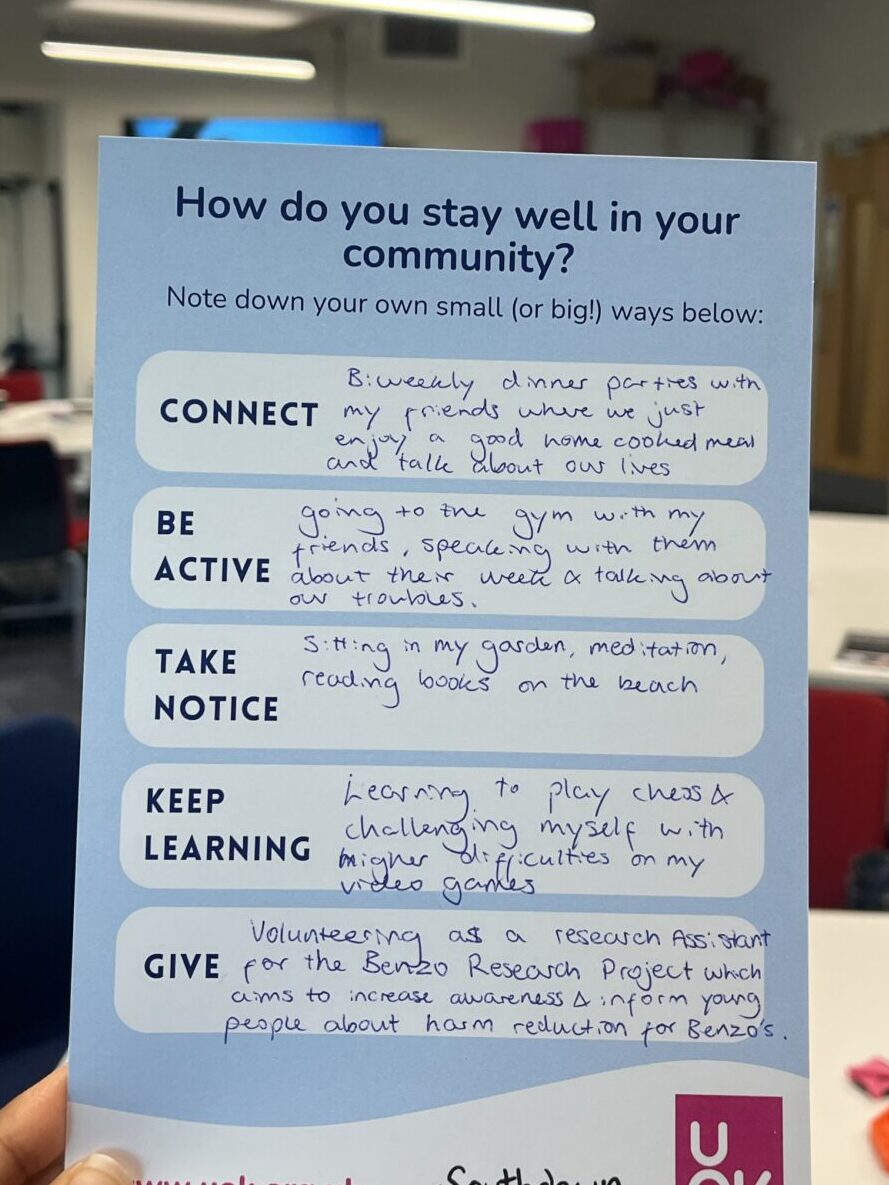 How do you stay well in your
community?
Note down your own small (or big!) ways below:
CONNECT
Biweekly dinner parties with
my friends where we just
enjoy a good home cooked meal
and talk about our lives
BE
ACTIVE
going to the gym with my
friends, speaking with them
about their week & talking about
our troubles.
TAKE
NOTICE
Sitting in my garden, meditation,
reading books on the beach
KEEP
LEARNING
Learning to play chess &
challenging myself with
higher difficulties on my
video games
GIVE
Volunteering as a research Assistant
for the Benzo Research Project which
aims to increase awareness & inform young
people about harm reduction for Benzo's.
Southdown
U
OK